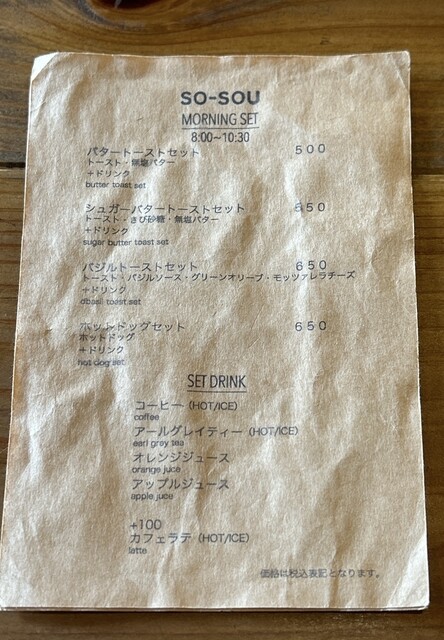 SO-SOU
MORNING SET
8:00~10:30
バタートーストセット 500
トースト・無塩バター
+ドリンク
butter toast set
シュガーバタートーストセット 550
トースト・きび砂糖・無塩バター
+ドリンク
sugar butter toast set
バジルトーストセット 650
トースト・バジルソース・グリーンオリーブ・モッツァレラチーズ
+ドリンク
basil toast set
ホットドッグセット 650
ホットドッグ
+ドリンク
hot dog set
SET DRINK
コーヒー（HOT/ICE）
coffee
アールグレイティー（HOT/ICE）
earl grey tea
オレンジジュース
orange juce
アップルジュース
apple juce
+100
カフェラテ（HOT/ICE）
latte
価格は税込表記となります。